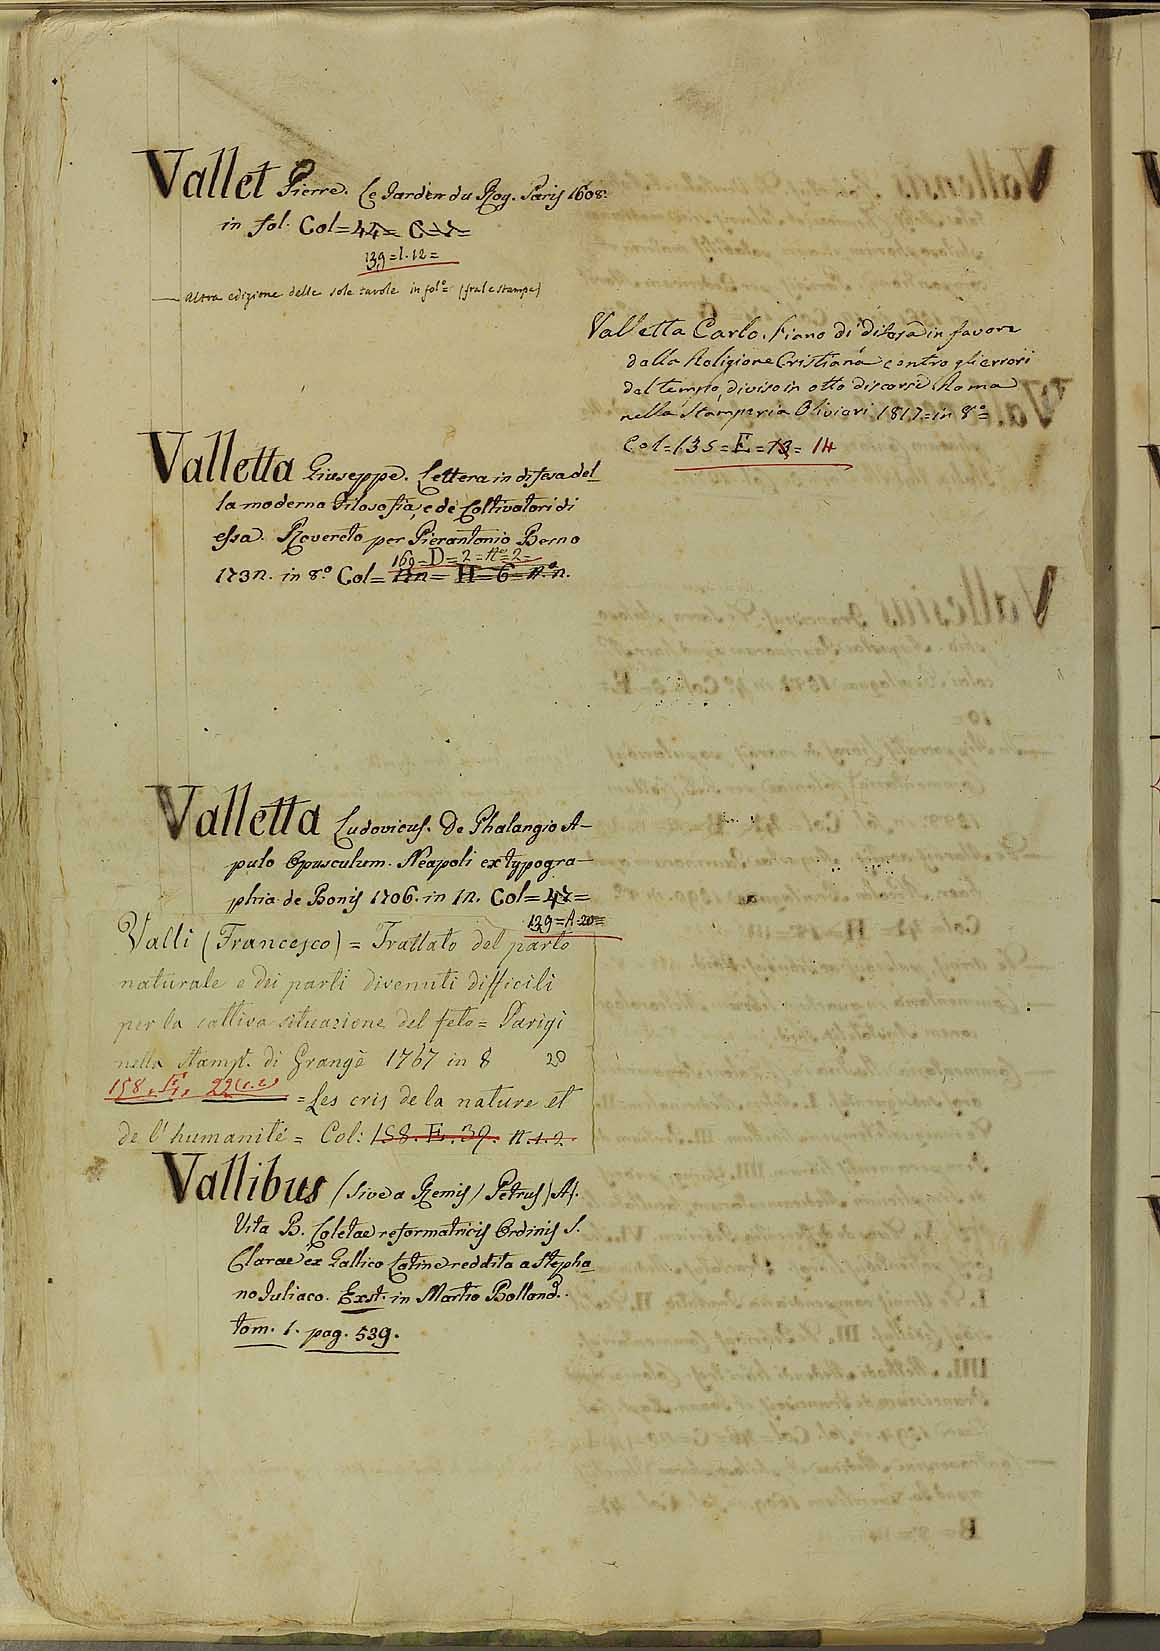 Vallet Pierre. Le Jardin du Roy. Paris 1608.
in fol. Col= 44= C=7=
139=I.12=
— Altra edizione delle sole tavole in fol.º= (fra le stampe)
Valletta Giuseppe. Lettera in difesa del-
la moderna Filosofia, e de' Coltivatori di
essa. Rovereto per Pierantonio Berno
169=D=2=Nº=2=
1732. in 8.º Col= H=6=Nº2.
Valletta Ludovicus. De Phalangio A-
pulo Opusculum. Neapoli ex typogra-
phia de Bonis 1706. in 12. Col= 47=
129=A.20=
Valli (Francesco) = Trattato del parto
naturale e dei parti divenuti difficili
per la cattiva situazione del feto= Parigi
nella stamp. di Grangè 1767 in 8 2º
158. 22(1.2)
=Les cris de la nature et
de l'humanité= Col: 158.E.39. N.1.2.
Vallibus (sive a Remis) Petrus) A).
Vita B. Coletae reformatricis Ordinis S.
Clarae ex Gallico Latine reddita a Stepha-
no Juliaco. Exst. in Martio Bolland.
tom. 1. pag. 539.
Valletta Carlo. Piano di difesa in favore
della Religione Cristiana contro gli errori
del tempo, diviso in otto discorsi Roma
nella Stamperia Olivieri 1817=in 8º=
Col=135=E=13= 14